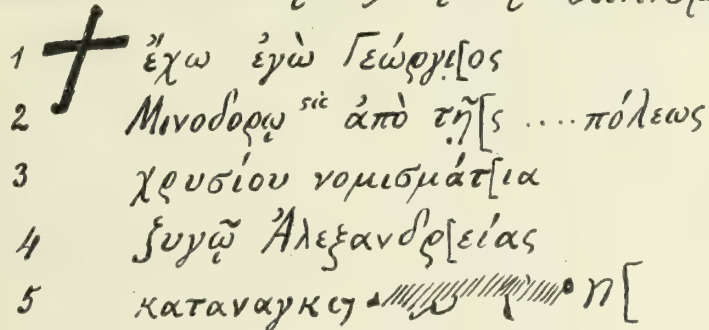 1 ἔχω ἐγὼ Γεώργι[ος
2 Μινοδορῳ sic ἀπὸ τῆ[ς .... πόλεως
3 χρυσίου νομισμάτ[ια
4 ζυγῷ Ἀλεξανδρ[είας
5 καταναγκ η[